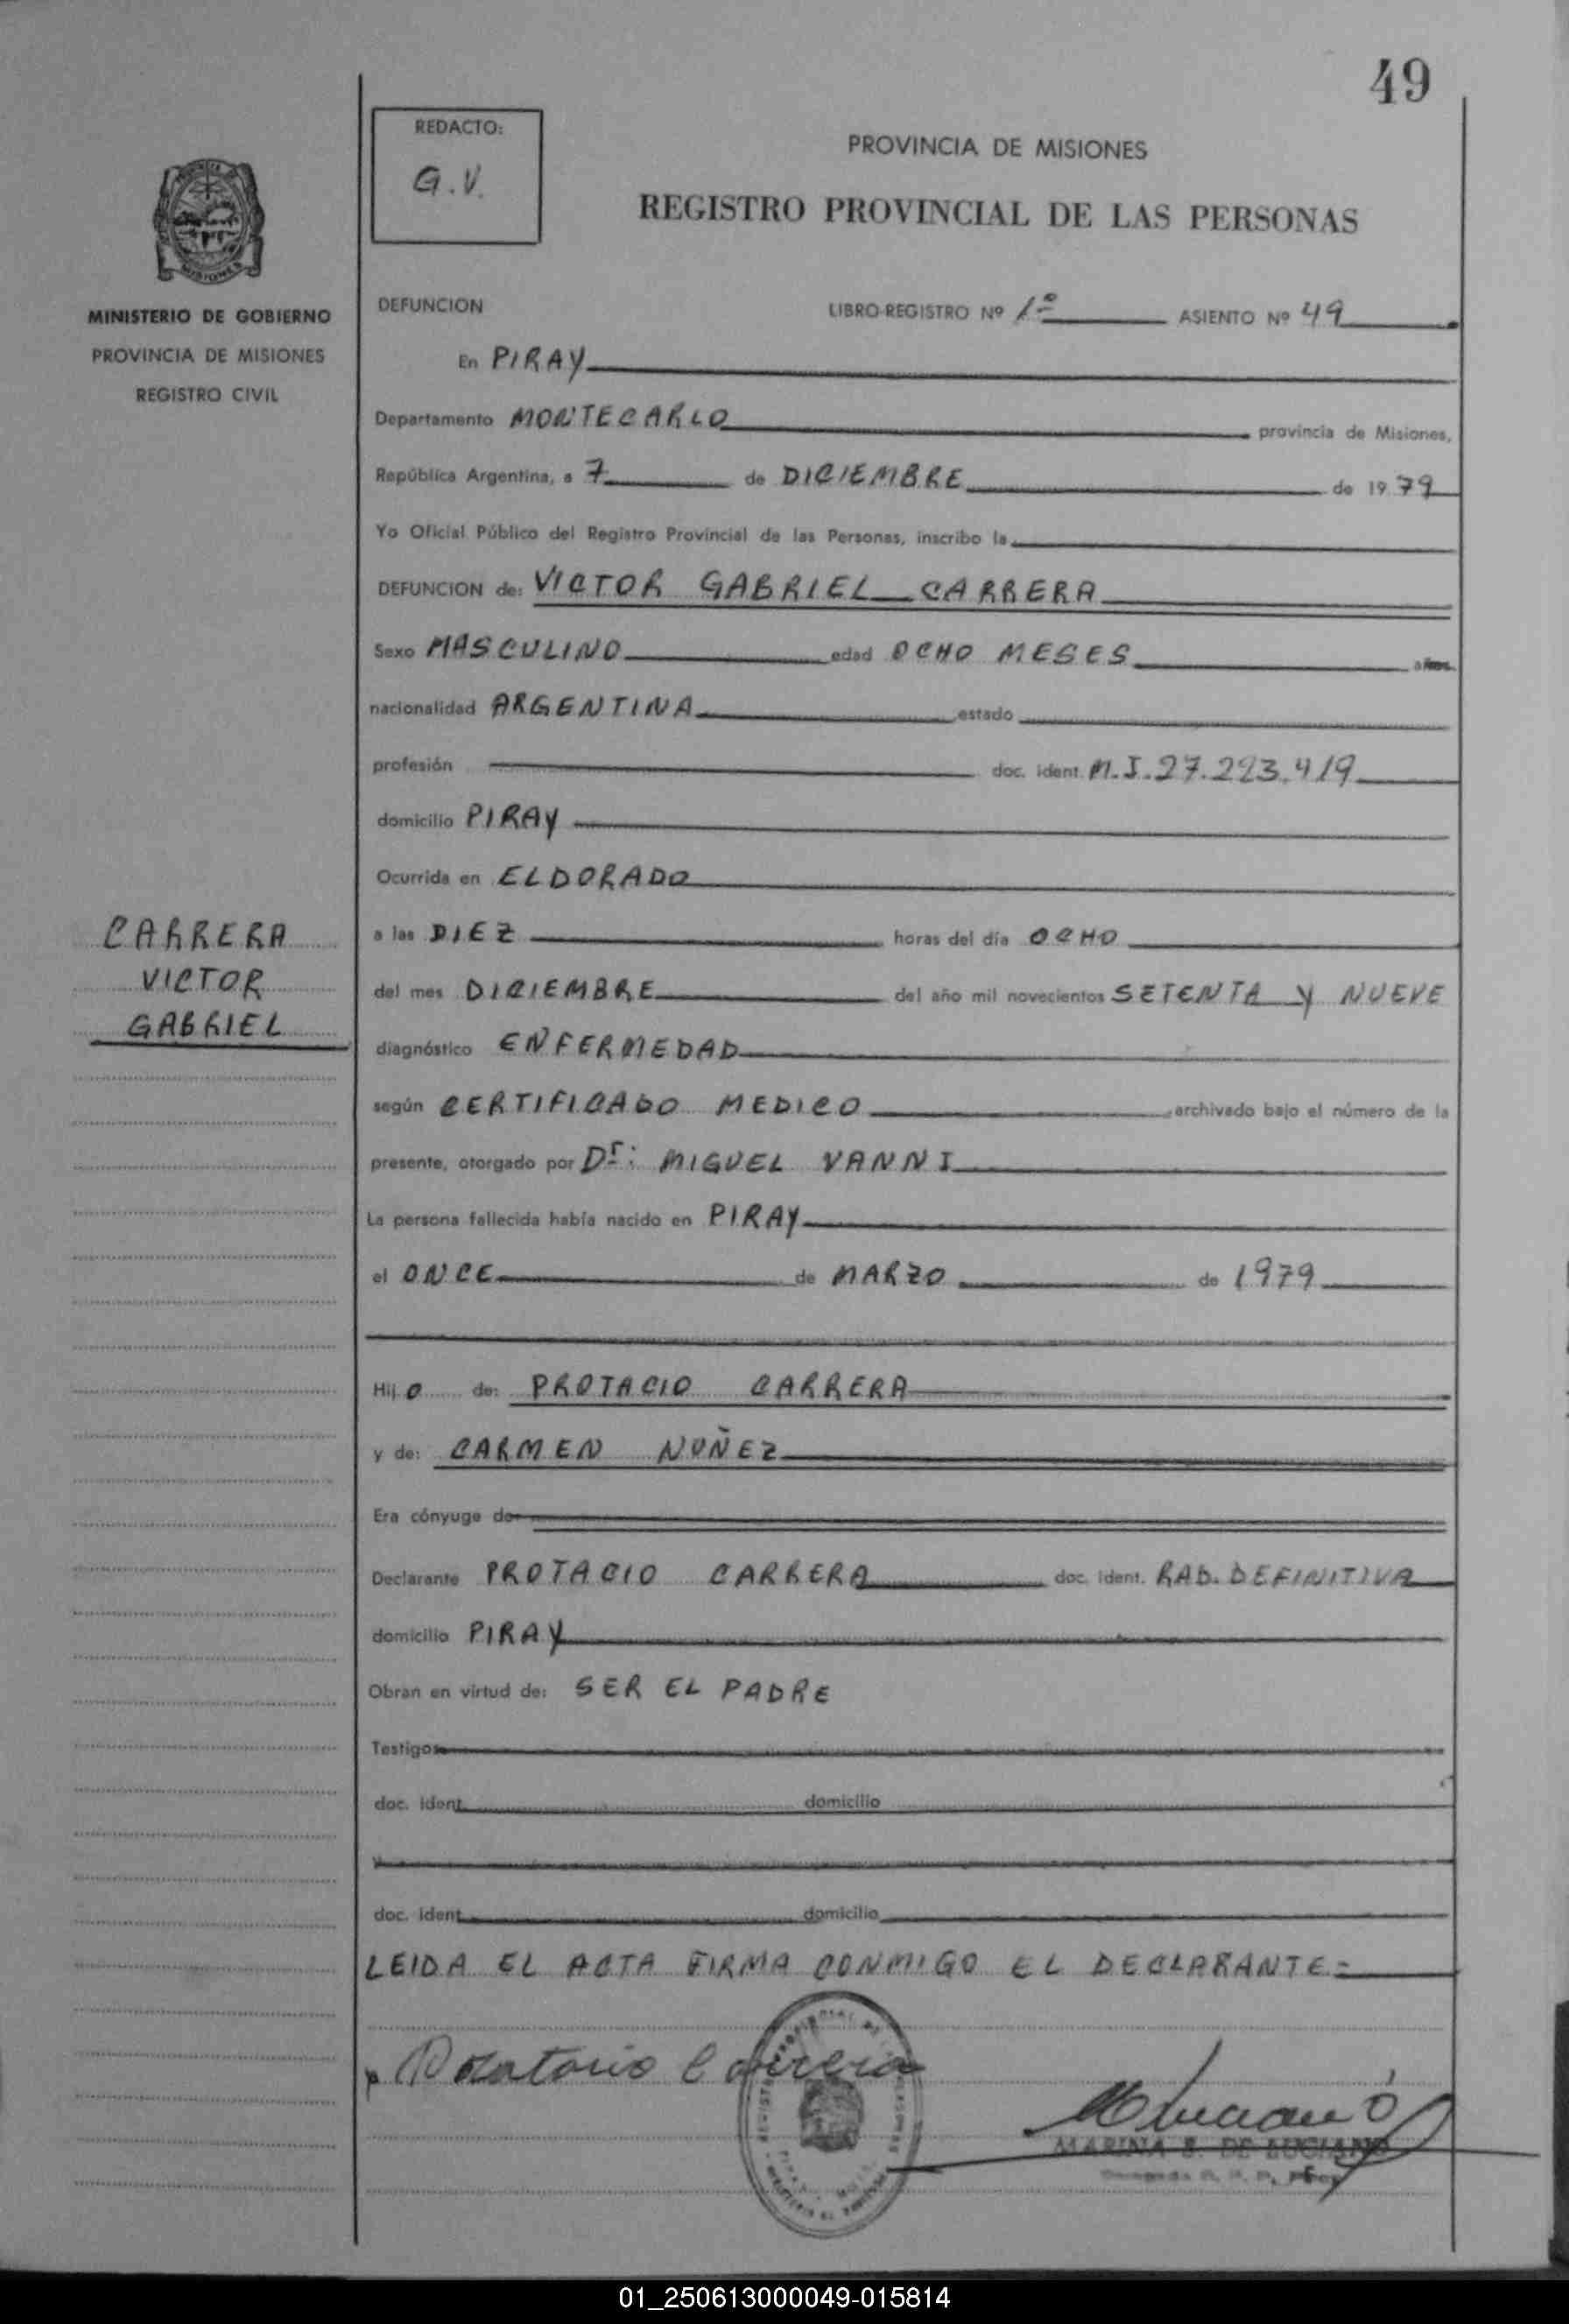 49
REDACTO:
G.V.
PROVINCIA DE MISIONES
REGISTRO PROVINCIAL DE LAS PERSONAS
MISIONES
MINISTERIO DE GOBIERNO
PROVINCIA DE MISIONES
REGISTRO CIVIL
DEFUNCION LIBRO-REGISTRO Nº 1º ASIENTO Nº 49
En PIRAY
Departamento MONTECARLO provincia de Misiones,
República Argentina, a 7 de DICIEMBRE de 1979
Yo Oficial Público del Registro Provincial de las Personas, inscribo la
DEFUNCION de: VICTOR GABRIEL CARRERA
Sexo MASCULINO edad OCHO MESES años
nacionalidad ARGENTINA estado
profesión doc. ident. M.I. 27.223.419
domicilio PIRAY
Ocurrida en ELDORADO
CARRERA
VICTOR
GABRIEL
a las DIEZ horas del día OCHO
del mes DICIEMBRE del año mil novecientos SETENTA Y NUEVE
diagnóstico ENFERMEDAD
según CERTIFICADO MEDICO archivado bajo el número de la
presente, otorgado por Dr: MIGUEL VANNI
La persona fallecida había nacido en PIRAY
el ONCE de MARZO de 1979
Hijo de: PROTACIO CARRERA
y de: CARMEN NUÑEZ
Era cónyuge de
Declarante PROTACIO CARRERA doc. ident. RAD. DEFINITIVA
domicilio PIRAY
Obran en virtud de: SER EL PADRE
Testigos
doc. ident. domicilio
y
doc. ident. domicilio
LEIDA EL ACTA FIRMA CONMIGO EL DECLARANTE.=
Carrera
MARINA S. DE LUCIANO
01_250613000049-015814